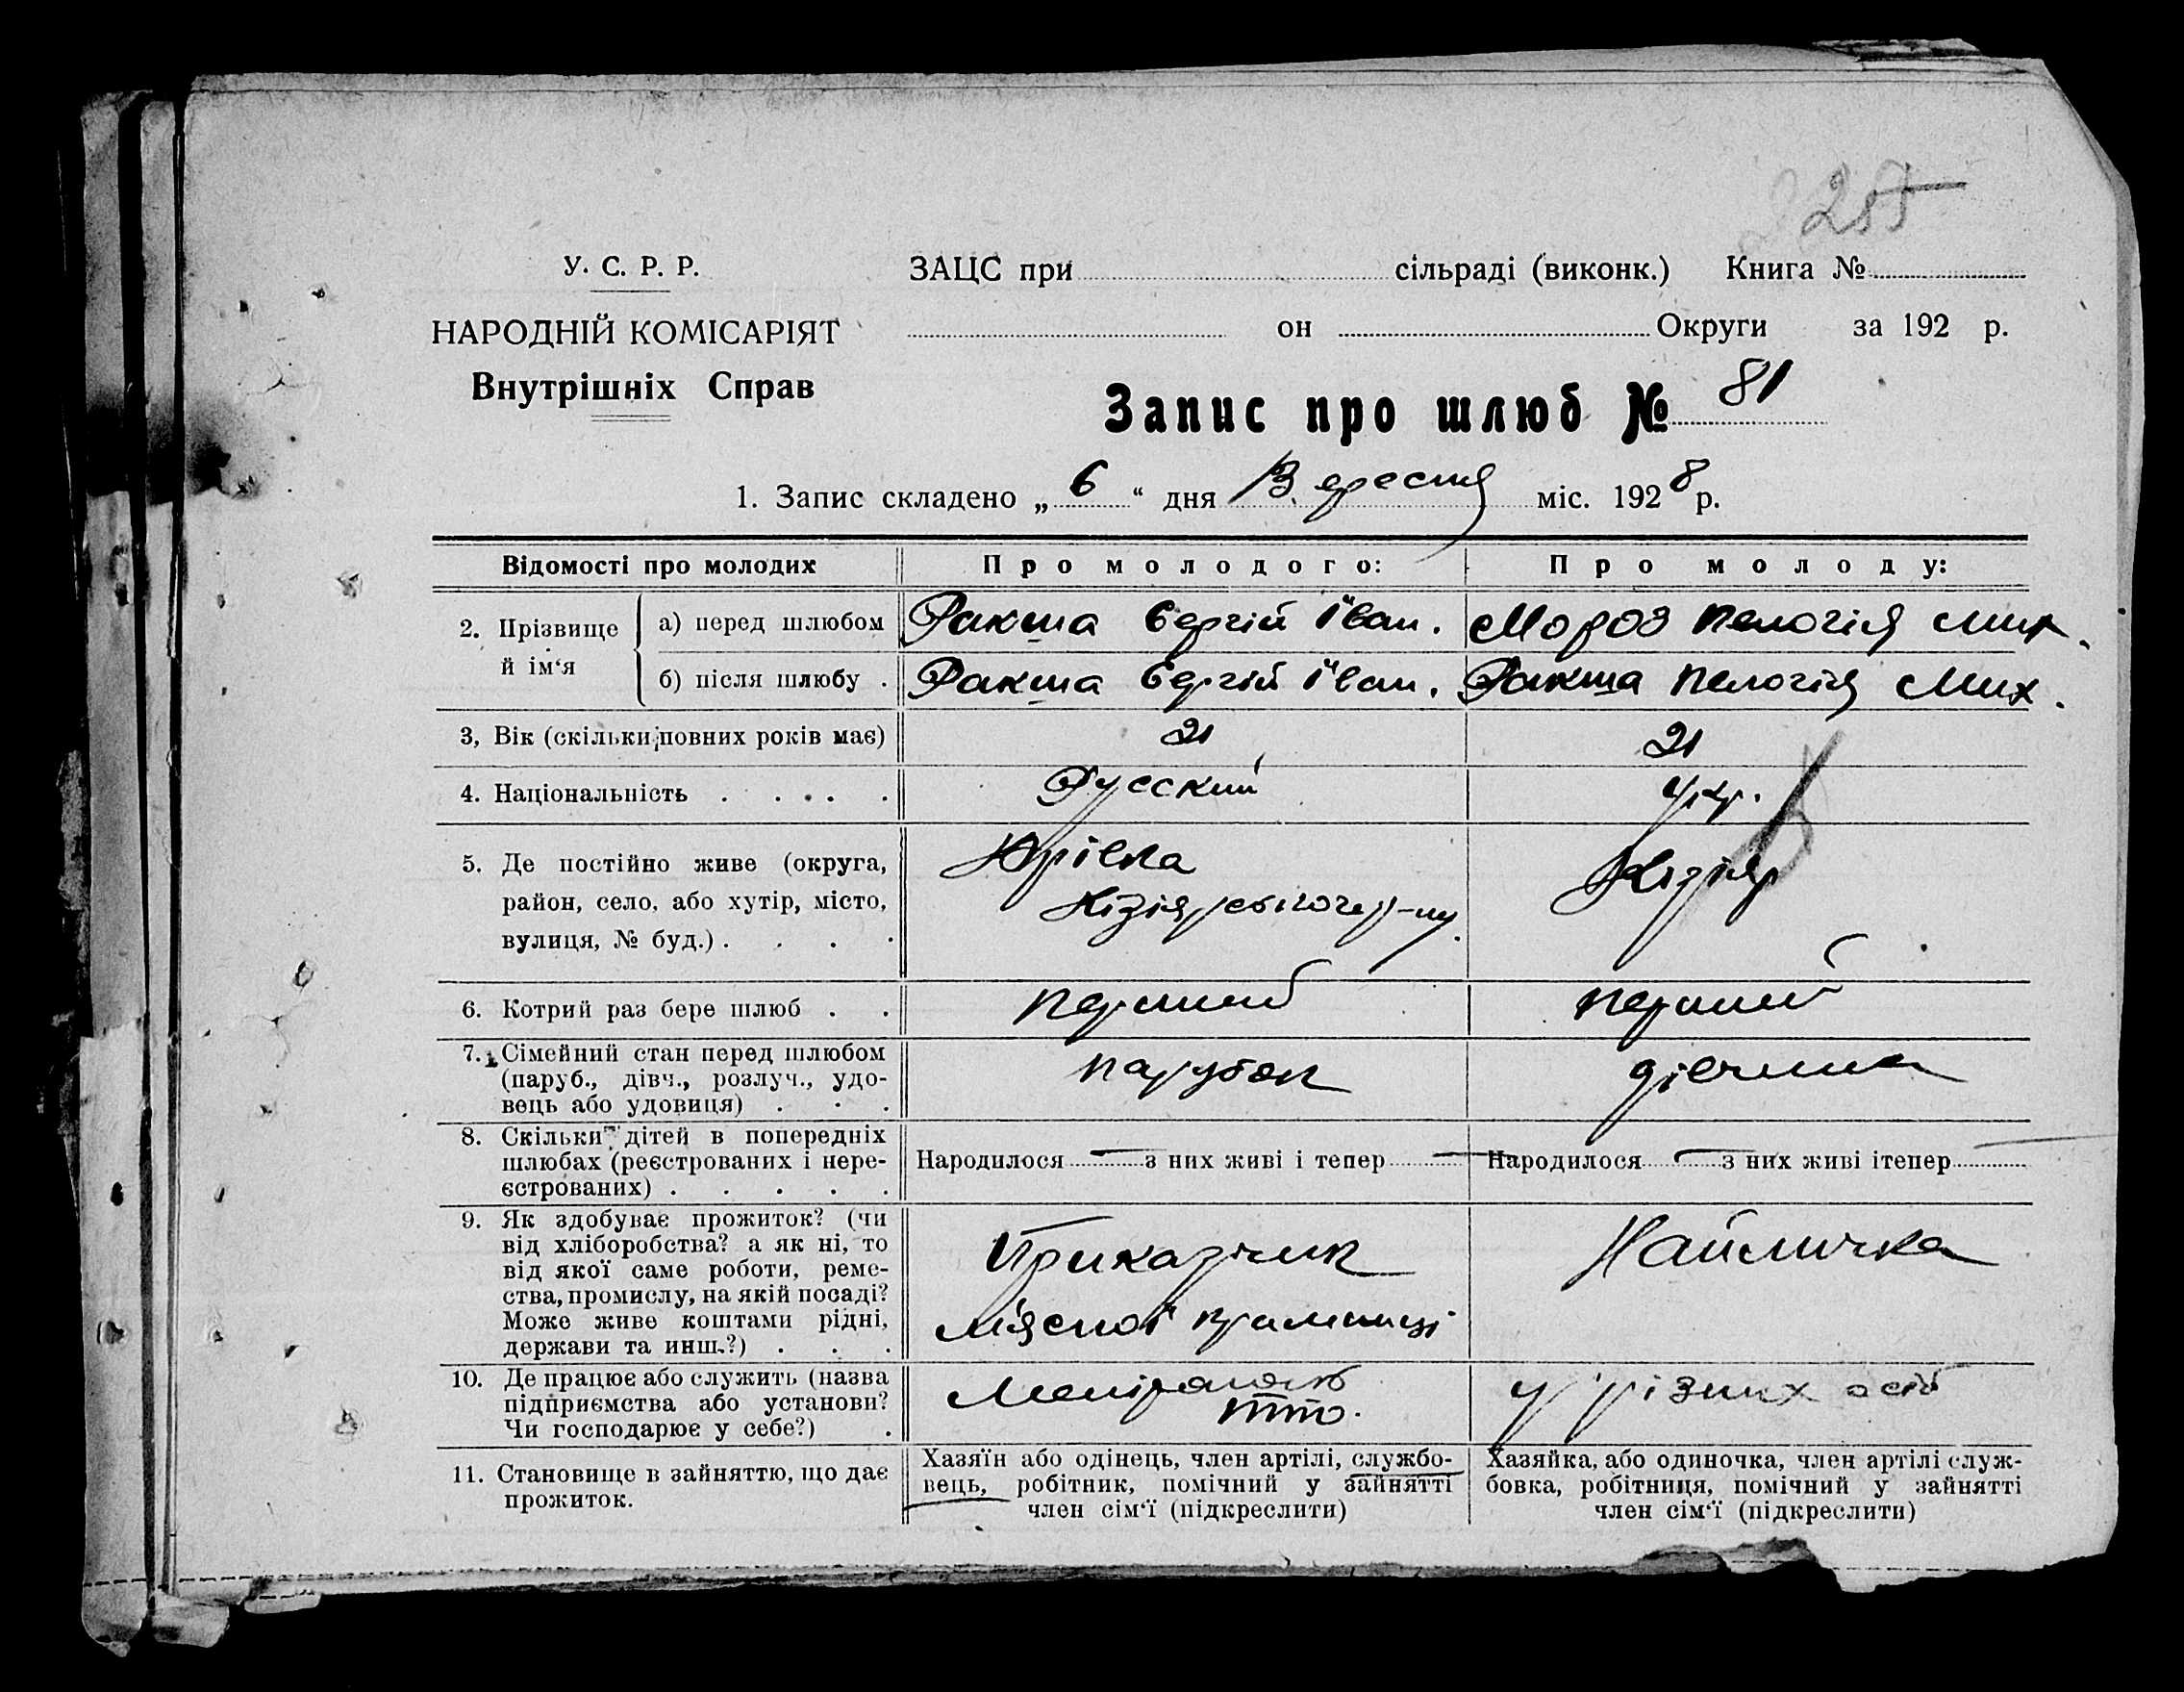 225
У. С. Р. Р.
НАРОДНІЙ КОМІСАРІЯТ
Внутрішніх Справ
ЗАЦС при сільраді (виконк.) Книга №
он Округи за 192 р.
Запис про шлюб № 81
1. Запис складено „ 6 “ дня Вересня міс. 1928 р.
Відомості про молодих Про молодого: Про молоду:
2. Прізвище й ім‘я
а) перед шлюбом Ракша Сергій Іван. Мороз Пелогія Мих.
б) після шлюбу . Ракша Сергій Іван. Ракша Пелогія Мих.
3, Вік (скільки повних років має) 21 21
4. Національність . . . . . Русский Укр.
5. Де постійно живе (округа, район, село, або хутір, місто, вулиця, № буд.) . . . .
Юрівка
Кізіярського р-ну.
Кізіяр
6. Котрий раз бере шлюб . . перший перший
7. Сімейний стан перед шлюбом (паруб., дівч., розлуч., удовець або удовиця) . . . парубок дівчина
8. Скільки дітей в попередніх шлюбах (реєстрованих і нереєстрованих) . . . . .
Народилося — з них живі і тепер —
Народилося — з них живі ітепер —
9. Як здобуває прожиток? (чи від хліборобства? а як ні, то від якої саме роботи, ремества, промислу, на якій посаді? Може живе коштами рідні, держави та инш.?) . . .
Приказчик
м'ясної крамниці
Наймичка
10. Де працює або служить (назва підприємства або установи? Чи господарює у себе?) .
у різних осіб
11. Становище в зайняттю, що дає прожиток.
Хазяїн або одінець, член артілі, службовець, робітник, помічний у зайнятті член сім‘ї (підкреслити)
Хазяйка, або одиночка, член артілі службовка, робітниця, помічний у зайнятті член сім‘ї (підкреслити)